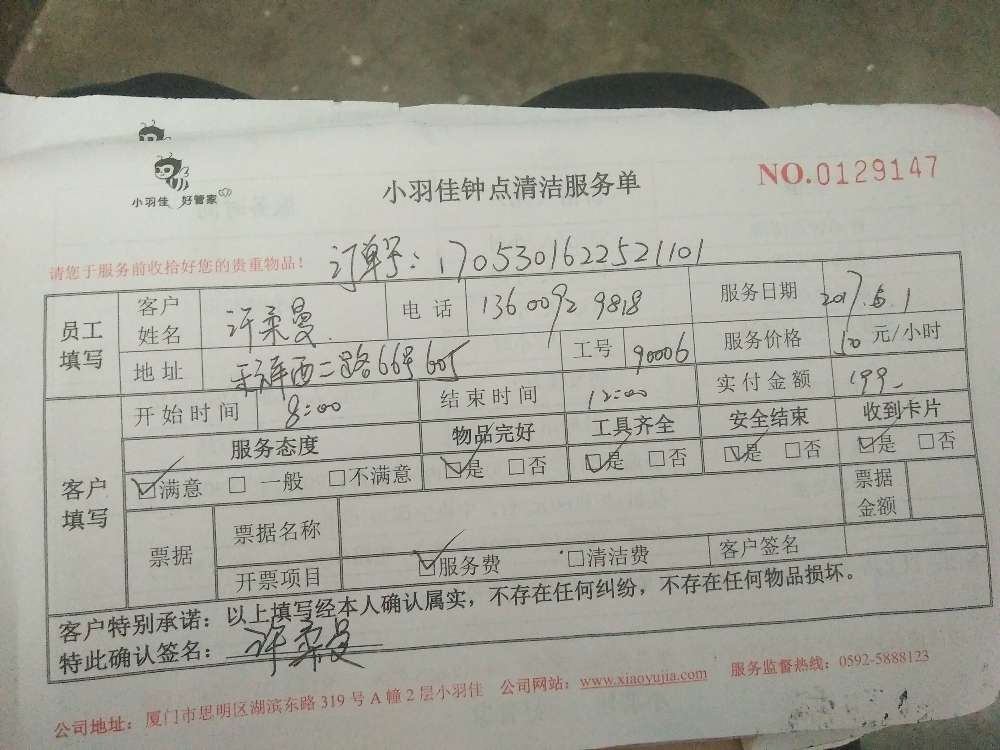 小羽佳 好管家
小羽佳钟点清洁服务单
NO.0129147
请您于服务前收拾好您的贵重物品！
订单号：1705301622521101
员工填写 客户姓名 许柔曼 电话 13600929818 服务日期 2017.6.1
地址 西二路66号605 工号 90006 服务价格 50 元/小时
客户填写 开始时间 8:00 结束时间 12:00 实付金额 199
服务态度 物品完好 工具齐全 安全结束 收到卡片
☑满意 □一般 □不满意 ☑是 □否 ☑是 □否 ☑是 □否 ☑是 □否
票据 票据名称 票据金额
开票项目 ☑服务费 □清洁费 客户签名
客户特别承诺：以上填写经本人确认属实，不存在任何纠纷，不存在任何物品损坏。
特此确认签名：许柔曼
公司地址：厦门市思明区湖滨东路319号A幢2层小羽佳 公司网站：www.xiaoyujia.com 服务监督热线：0592-5888123